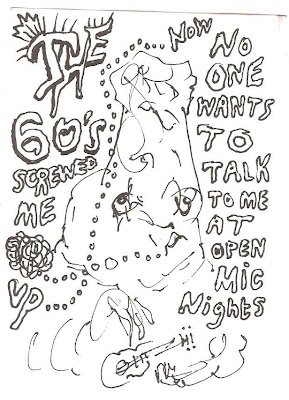 THE
60's
SCREWED
ME
UP
NOW
NO
ONE
WANTS
TO
TALK
TO ME
AT
OPEN
MIC
Nights
Hi